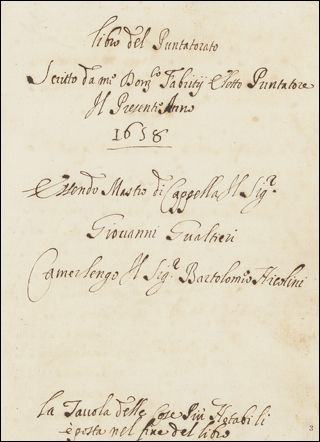 libro del Puntatorato
Scritto da me Domco Fabritij eletto Puntatore
Il Presente Anno
1658
Essendo Mastro di Cappella Il Sigr.
Giovanni Gualtieri
Camerlengo Il Sigr. Bartolomeo Nicolini
La Tavola delle Cose Più Notabili
è posta nel fine del libro
3